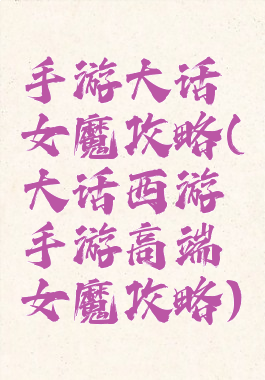 手游大话
女魔攻略(
大话西游
手游高端
女魔攻略)